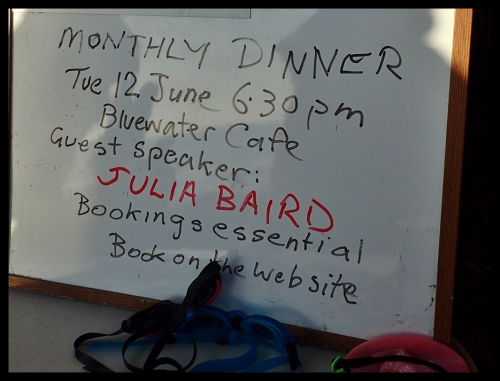 MONTHLY DINNER
Tue 12 June 6.30 pm
Bluewater Cafe
Guest speaker:
JULIA BAIRD
Bookings essential
Book on the website